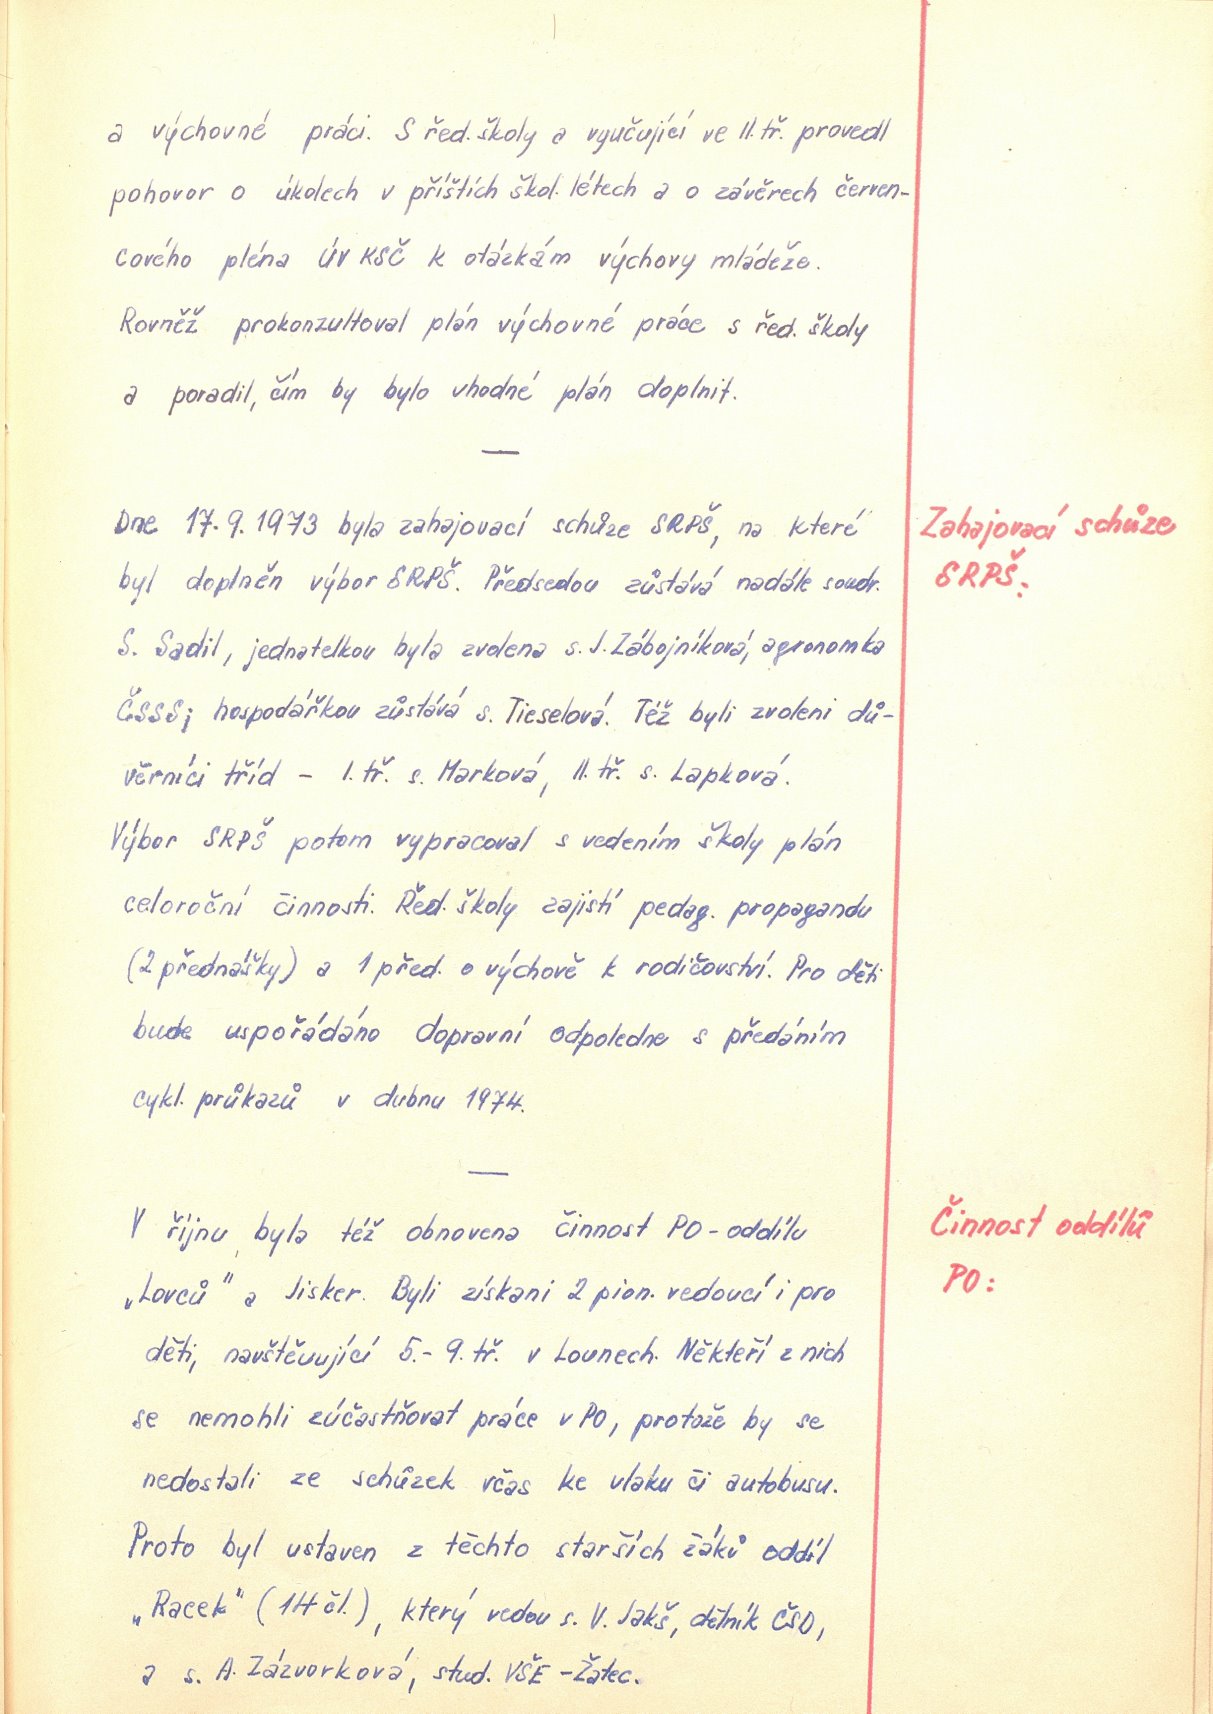 a výchovné práci. S řed. školy a vyučující ve II. tř. provedl
pohovor o úkolech v příštích škol. létech a o závěrech červen-
cového pléna ÚV KSČ k otázkám výchovy mládeže.
Rovněž prokonzultoval plán výchovné práce s řed. školy
a poradil, čím by bylo vhodné plán doplnit.
—
Dne 17.9.1973 byla zahajovací schůze SRPŠ, na které
Zahajovací schůze
byl doplněn výbor SRPŠ. Předsedou zůstává nadále soudr.
SRPŠ:
S. Sadil, jednatelkou byla zvolena s. J. Zábojníková, agronomka
ČSSS; hospodářkou zůstává s. Tieselová. Též byli zvoleni dů-
věrníci tříd - I. tř. s. Marková, II. tř. s. Lapková.
Výbor SRPŠ potom vypracoval s vedením školy plán
celoroční činnosti. Řed. školy zajistí pedag. propagandu
(2 přednášky) a 1 před. o výchově k rodičovství. Pro děti
bude uspořádáno dopravní odpoledne s předáním
cykl. průkazů v dubnu 1974.
—
V říjnu byla též obnovena činnost PO - oddílu
Činnost oddílů
„Lovců" a Jisker. Byli získani 2 pion. vedoucí i pro
PO:
děti, navštěvující 5.- 9. tř. v Lounech. Někteří z nich
se nemohli zúčastňovat práce v PO, protože by se
nedostali ze schůzek včas ke vlaku či autobusu.
Proto byl ustaven z těchto starších žáků oddíl
„Racek" (14 čl.), který vedou s. V. Jakš, dělník ČSD,
a s. A. Zázvorková, stud. VŠE - Žatec.